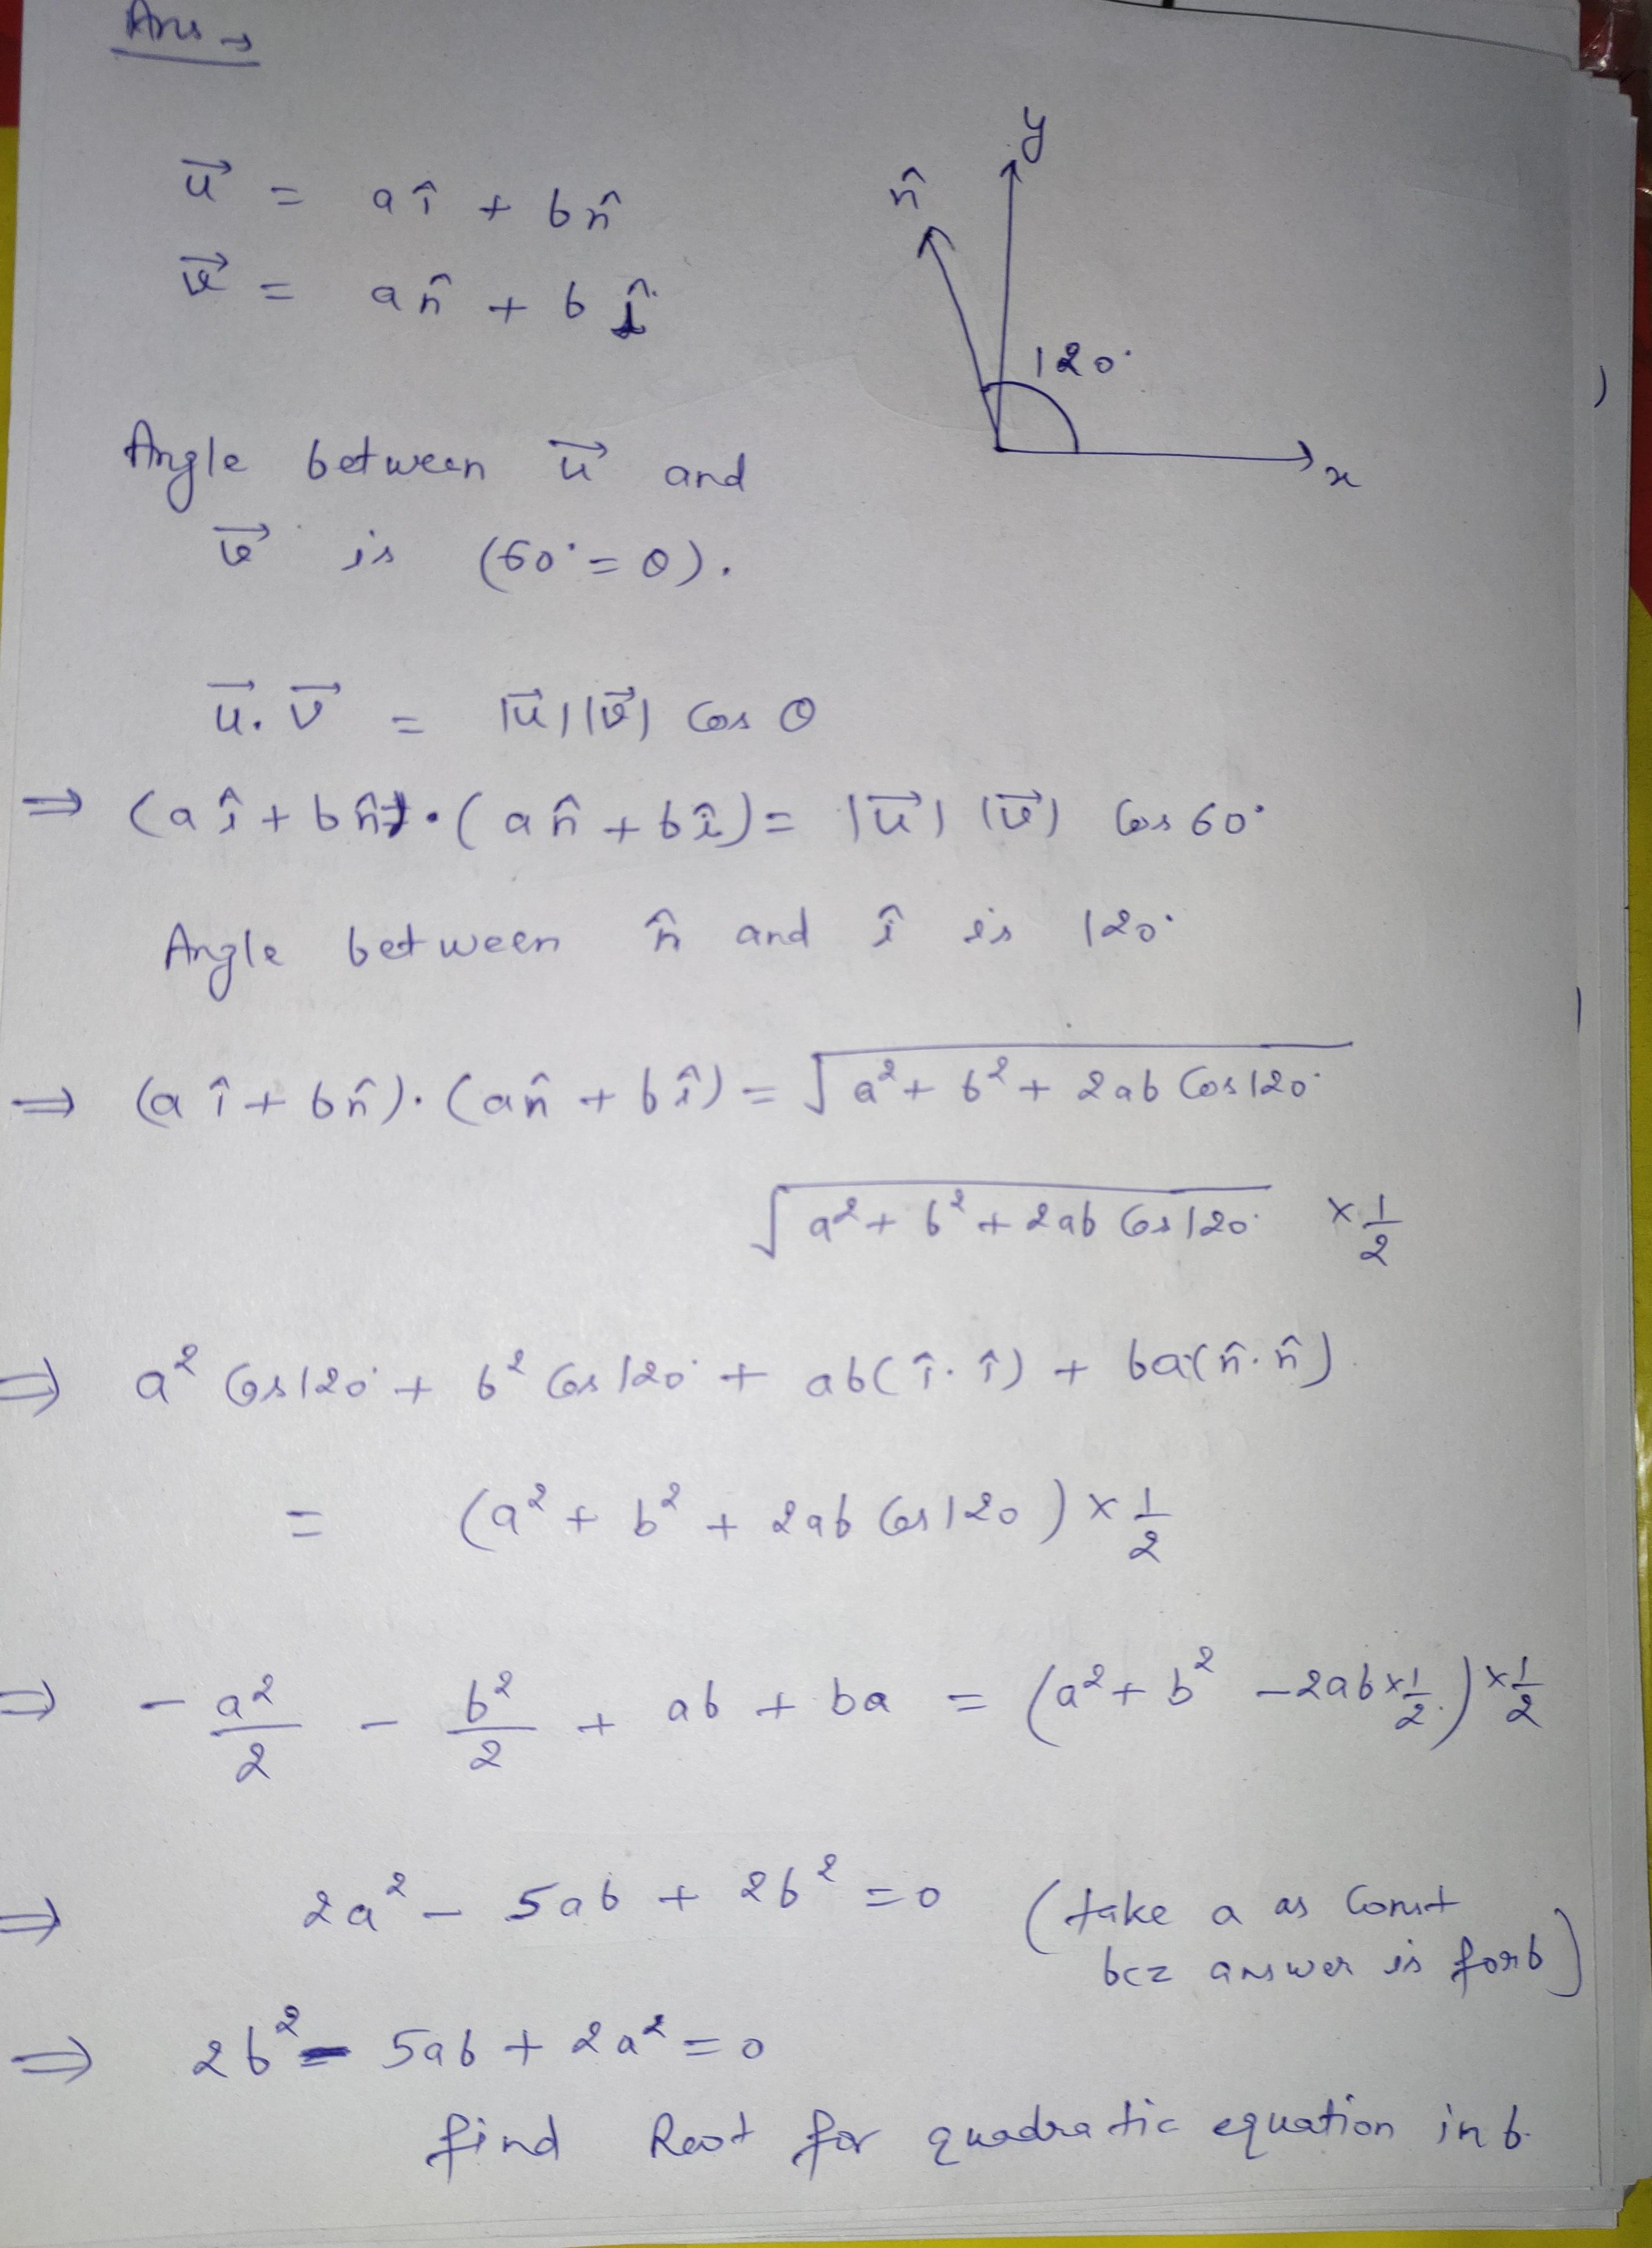 Ans →
u⃗ = a î + b n̂
v⃗ = a n̂ + b î
n̂
y
120°
x
Angle between u⃗ and
v⃗ is (60° = θ).
u⃗. v⃗ = |u⃗| |v⃗| Cos θ
⇒ (a î + b n̂) • (a n̂ + b î) = |u⃗| |v⃗| Cos 60°
Angle between n̂ and î is 120°
⇒ (a î + b n̂). (a n̂ + b î) = √(a² + b² + 2ab Cos 120°)
√(a² + b² + 2ab Cos 120°) × 1/2
⇒ a² Cos 120° + b² Cos 120° + ab( î. î) + ba(n̂. n̂)
= (a² + b² + 2ab Cos 120) × 1/2
⇒ - a²/2 - b²/2 + ab + ba = (a² + b² - 2ab × 1/2.) × 1/2
⇒ 2a² - 5ab + 2b² = 0 (take a as Const
bcz answer is for b)
⇒ 2b² - 5ab + 2a² = 0
find Root for quadratic equation in b.